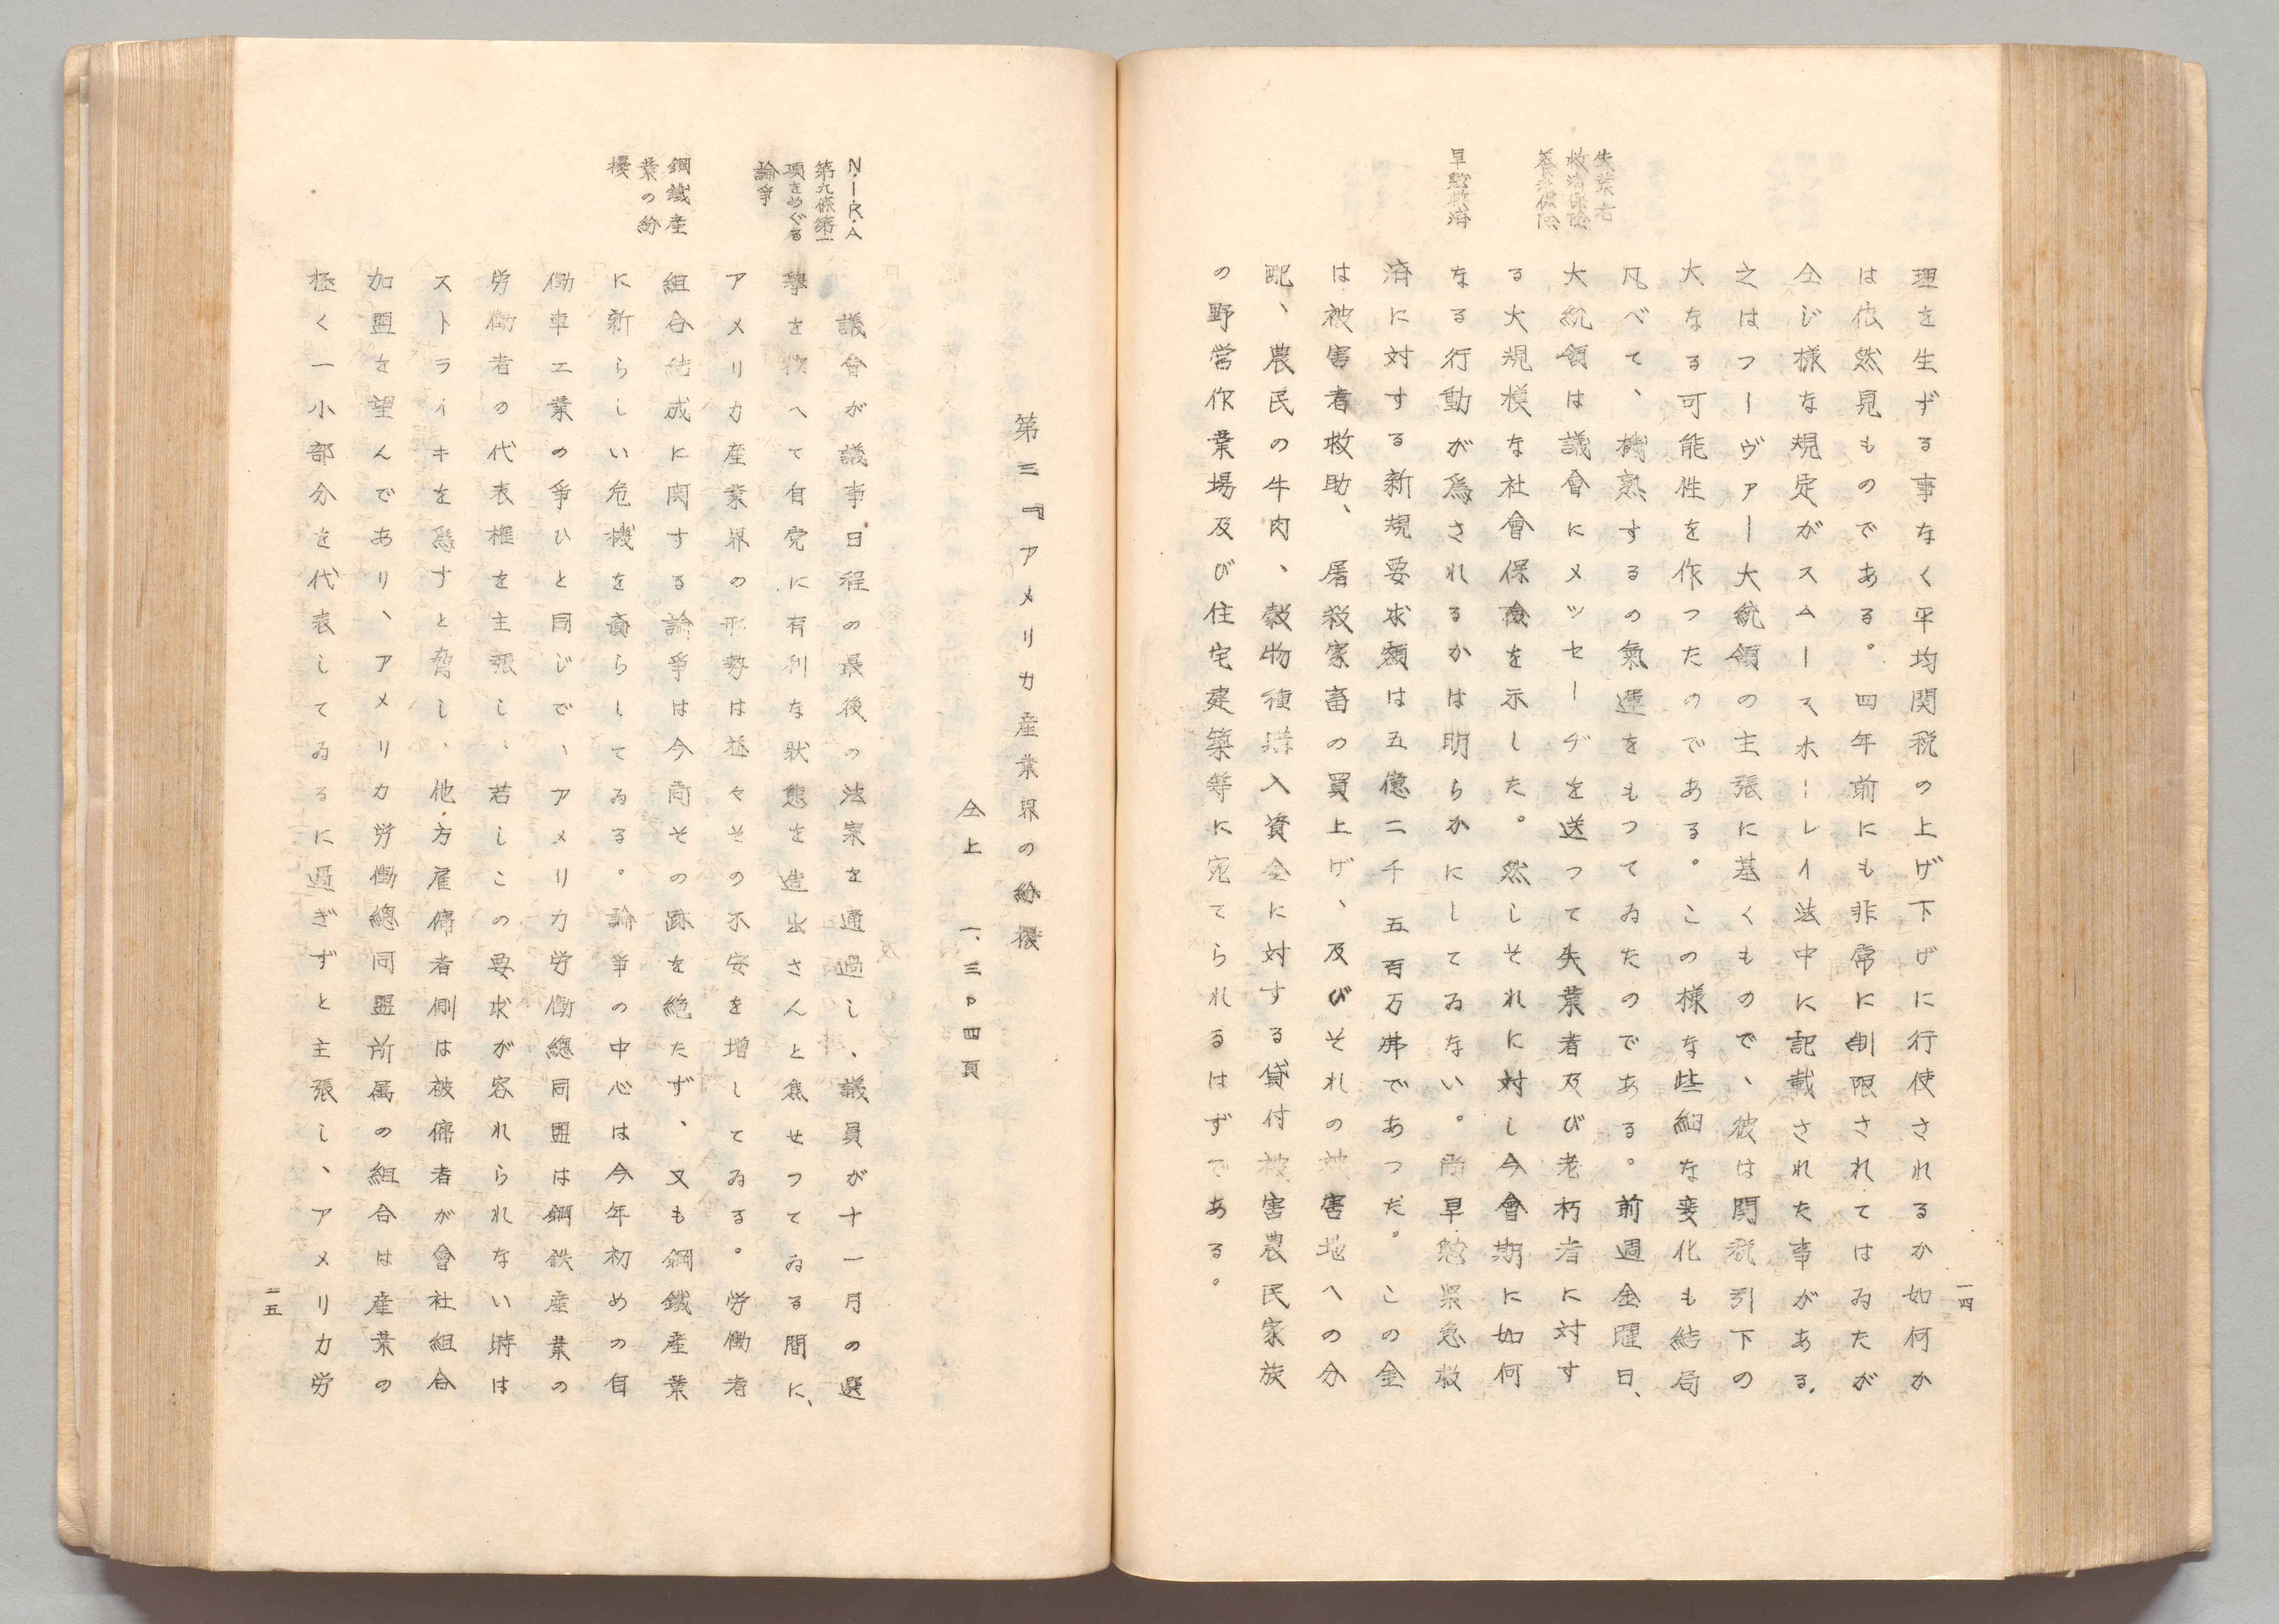 一四
失業者
救済保険
養老保険
旱魃救済
理を生ずる事なく平均関税の上げ下げに行使されるか如何か
は依然見ものである。四年前にも非常に制限されてはゐたが
仝じ様な規定がスムースホーレイ法中に記載された事がある。
之はフーヴァー大統領の主張に基くもので、彼は関税引下の
大なる可能性を作つたのである。この様な些細な変化も結局
凡べて、機熟するの氣運をもつてゐたのである。前週金曜日、
大統領は議會にメツセーヂを送つて失業者及び老朽者に対す
る大規模な社會保険を示した。然しそれに対し今會期に如何
なる行動が為されるかは明らかにしてゐない。尚旱魃緊急救
済に対する新規要求額は五億二千五百万弗であつた。この金
は被害者救助、屠殺家畜の買上げ、及びそれの被害地への分
配、農民の牛肉、穀物種購入資金に対する貸付被害農民家族
の野営作業場及び住宅建築等に宛てられるはずである。
第三『アメリカ産業界の紛擾
仝上 一、三p四頁
N・I・R・A
第九條第一
項をめぐる
論争
鋼鐵産
業の紛
擾
議會が議事日程の最後の法案を通過し、議員が十一月の選
挙を控へて自党に有利な状態を造出さんと焦せつてゐる間に、
アメリカ産業界の形勢は益々その不安を増してゐる。労働者
組合結成に関する論争は今尚その跡を絶たず、又も鋼鐵産業
に新らしい危機を齎らしてゐる。論争の中心は今年初めの自
働車工業の争ひと同じで、アメリカ労働總同盟は鋼鉄産業の
労働者の代表権を主張し、若しこの要求が容れられない時は
ストライキを為すと脅し、他方雇傭者側は被傭者が會社組合
加盟を望んであり、アメリカ労働總同盟所属の組合は産業の
極く一小部分を代表してゐるに過ぎずと主張し、アメリカ労
一五